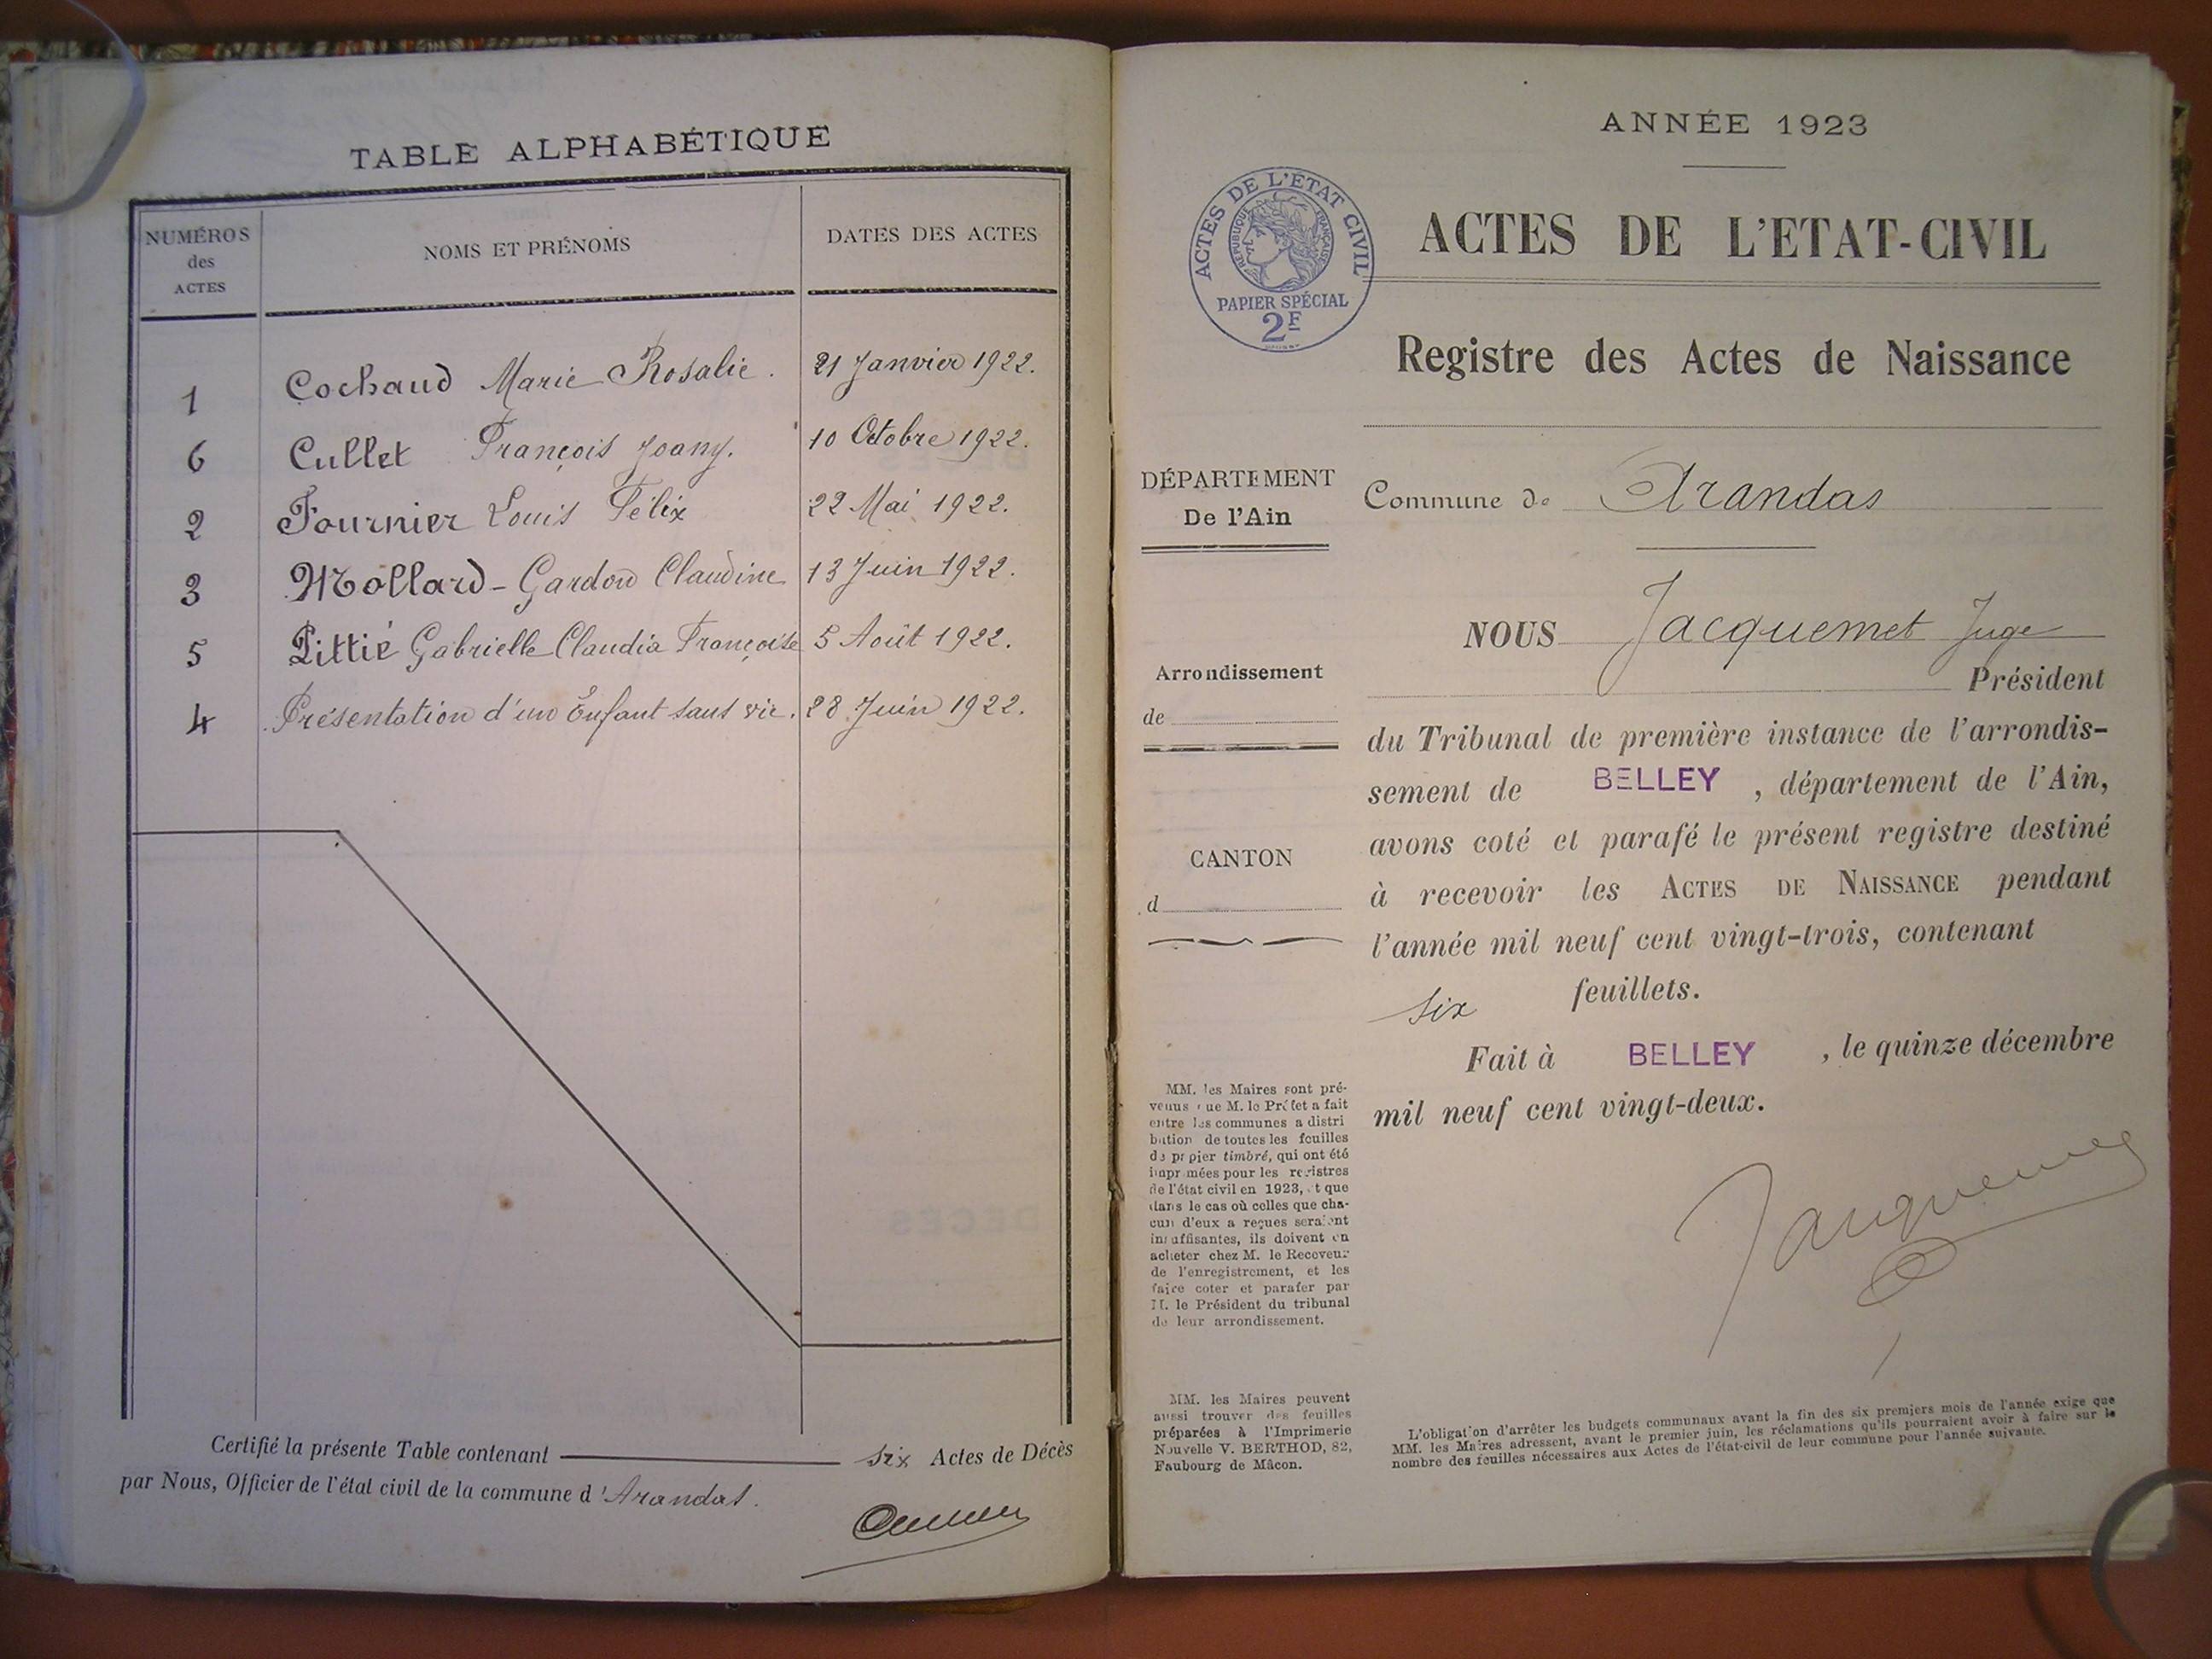 TABLE ALPHABÉTIQUE
NUMÉROS
des
ACTES
NOMS ET PRÉNOMS
DATES DES ACTES
1 Cochaud Marie Rosalie. 21 Janvier 1922.
6 Cullet François Joany. 10 Octobre 1922.
2 Fournier Louis Félix 22 Mai 1922.
3 Mollard-Gardon Claudine 13 Juin 1922.
5 Pittié Gabrielle Claudia Françoise 5 Août 1922.
4 Présentation d'un Enfant sans vie. 28 Juin 1922.
Certifié la présente Table contenant six Actes de Décès
par Nous, Officier de l'état civil de la commune d'Arandas.
ANNÉE 1923
ACTES DE L'ETAT CIVIL
RÉPUBLIQUE FRANÇAISE
PAPIER SPÉCIAL
2F
ACTES DE L'ETAT-CIVIL
Registre des Actes de Naissance
DÉPARTEMENT
De l'Ain
Arrondissement
de
CANTON
d
MM. les Maires sont pré-
venus que M. le Préfet a fait
entre les communes a distri
bution de toutes les feuilles
de papier timbré, qui ont été
imprimées pour les registres
de l'état civil en 1923, et que
dans le cas où celles que cha-
cun d'eux a reçues seraient
insuffisantes, ils doivent en
acheter chez M. le Receveur
de l'enregistrement, et les
faire coter et parafer par
M. le Président du tribunal
de leur arrondissement.
MM. les Maires peuvent
aussi trouver des feuilles
préparées à l'Imprimerie
Nouvelle V. BERTHOD, 82,
Faubourg de Mâcon.
Commune de Arandas
NOUS Jacquemet Juge
Président
du Tribunal de première instance de l'arrondis-
sement de BELLEY, département de l'Ain,
avons coté et parafé le présent registre destiné
à recevoir les ACTES DE NAISSANCE pendant
l'année mil neuf cent vingt-trois, contenant
six feuillets.
Fait à BELLEY, le quinze décembre
mil neuf cent vingt-deux.
Jacquemet
L'obligation d'arrêter les budgets communaux avant la fin des six premiers mois de l'année exige que
MM. les Maires adressent, avant le premier juin, les réclamations qu'ils pourraient avoir à faire sur le
nombre des feuilles nécessaires aux Actes de l'état-civil de leur commune pour l'année suivante.